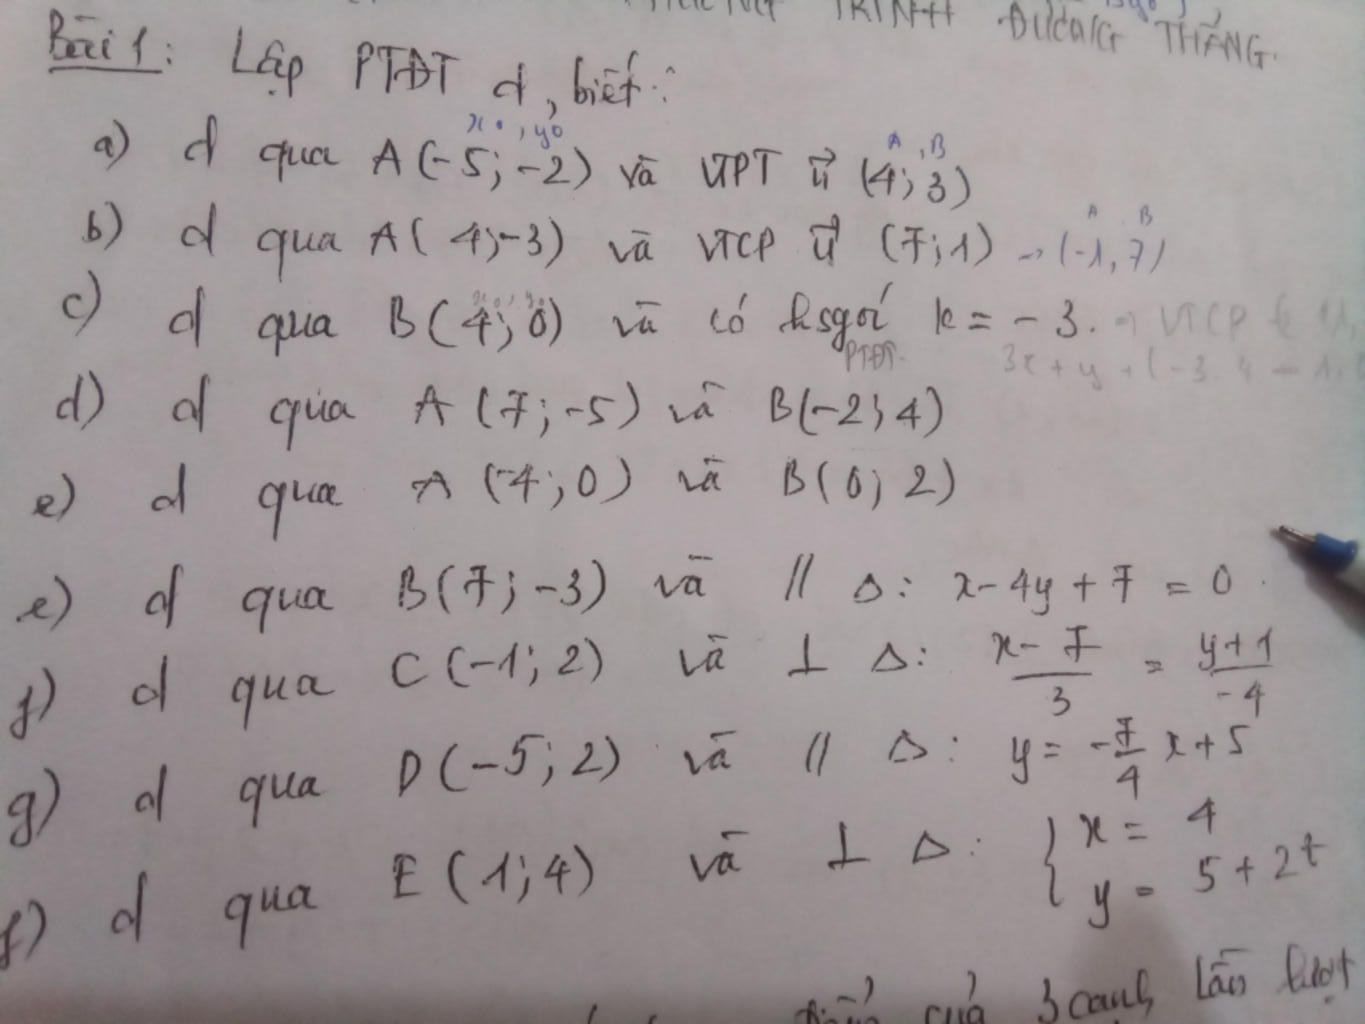 TRÌNH ĐƯỜNG THẲNG.
Bài 1: Lập PTĐT d, biết:
x0, y0
A, B
a) d qua A(-5; -2) và VTPT u⃗ (4; 3)
A B
b) d qua A( 4;-3) và VTCP u⃗ (7; 1) → (-1, 7)
x0, y0
c) d qua B(4; 0) và có hsgóc k = - 3. → VTCP
PTĐT. 3x + y + (-3. 4 - 1.
d) d qua A (7; -5) và B(-2; 4)
e) d qua A (-4; 0) và B(0; 2)
e) d qua B(7; -3) và // Δ: x- 4y + 7 = 0.
f) d qua C (-1; 2) và ⊥ Δ: x- 7/3 = y+1/-4
g) d qua D (-5; 2) và // Δ: y = -7/4 x + 5
f) d qua E (1; 4) và ⊥ Δ: { x = 4
y = 5 + 2t
của 3 cạnh lần lượt